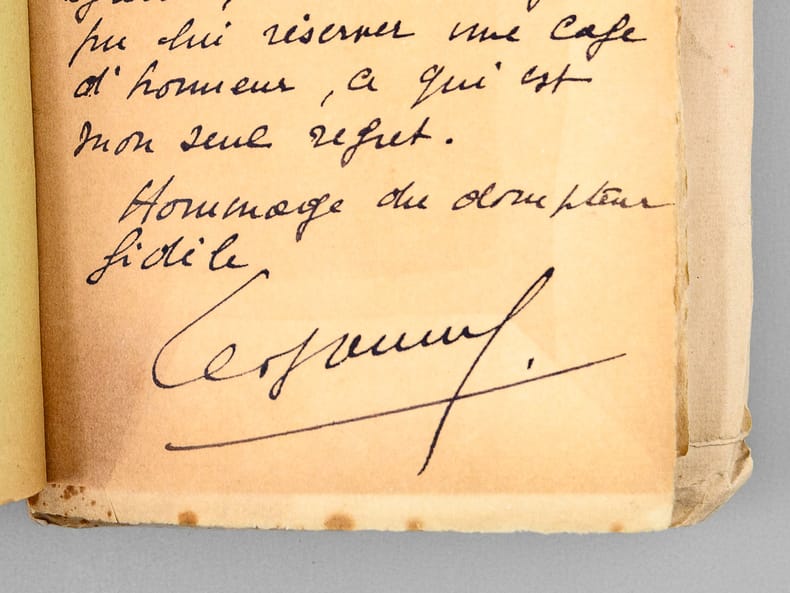 pu lui réserver une cage
d'honneur, ce qui est
mon seul regret.
Hommage du dompteur
fidèle